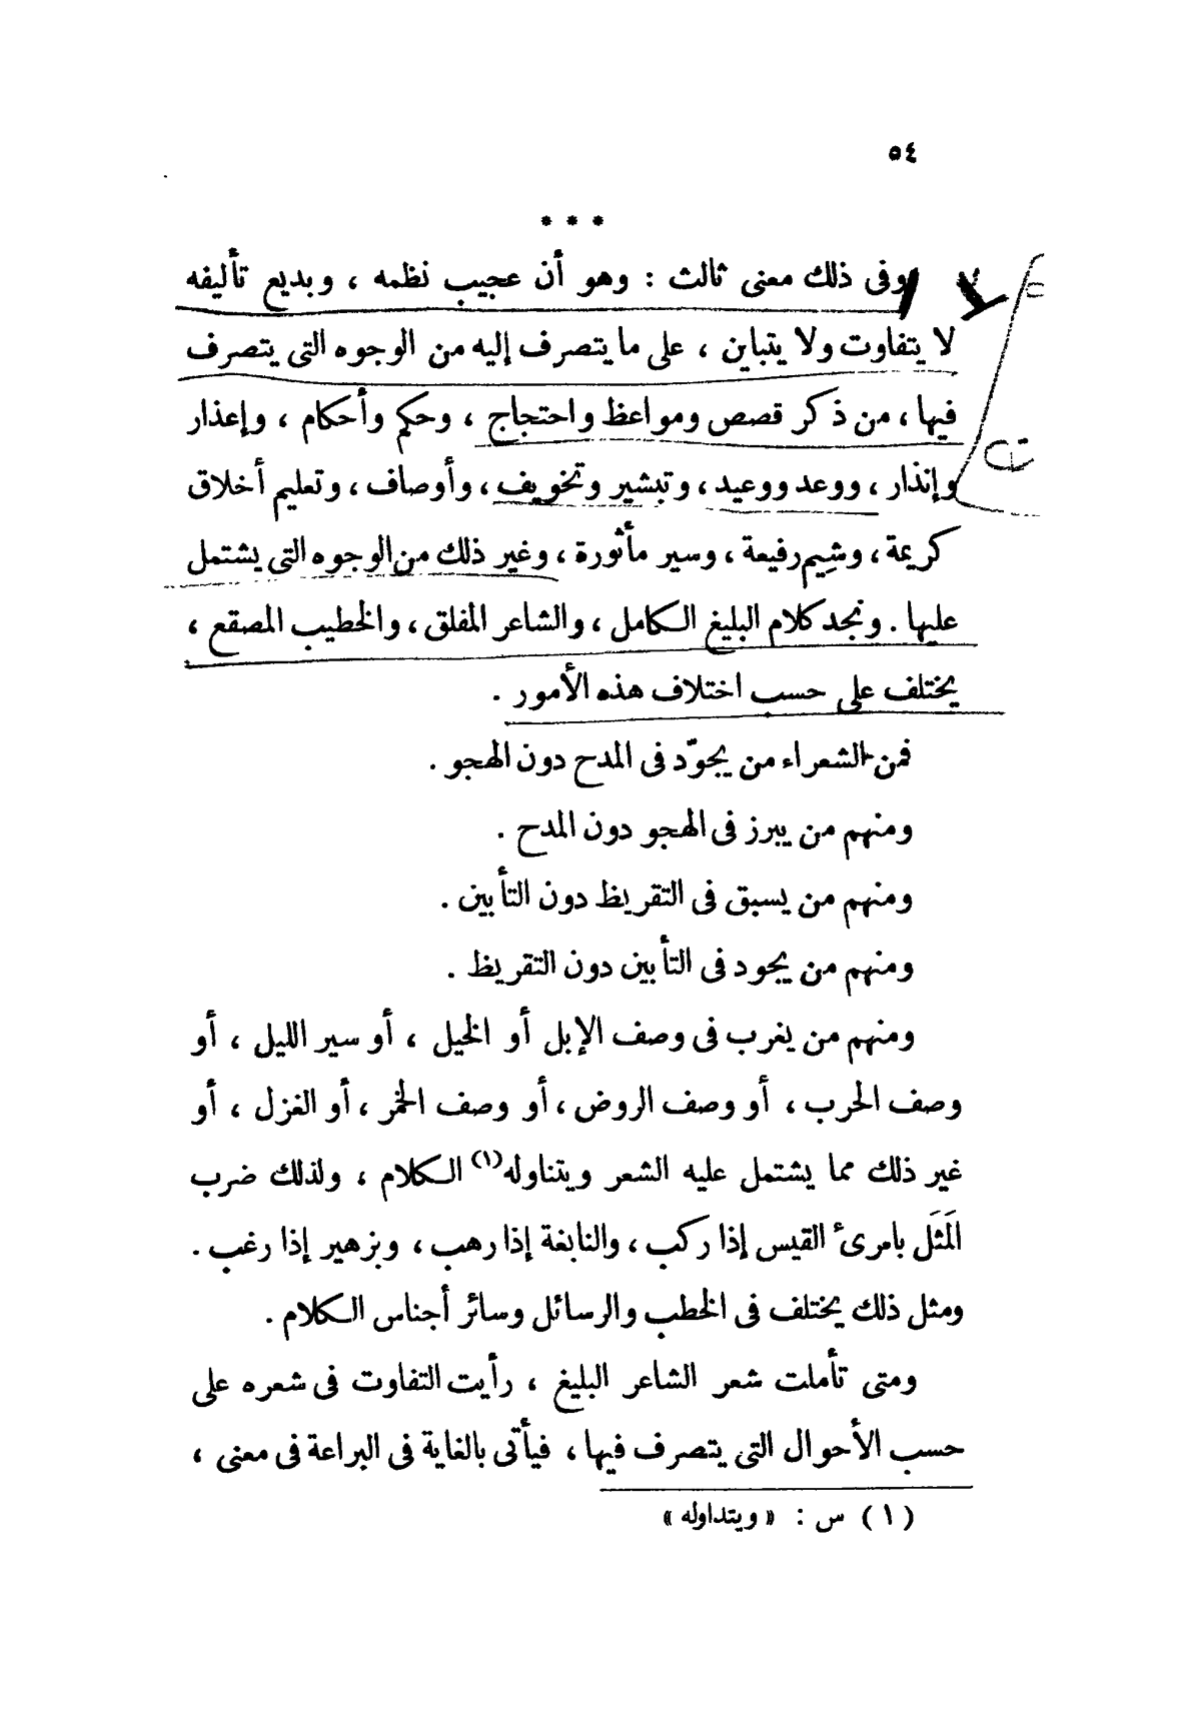 ٥٤
* * *
وفى ذلك معنى ثالث : وهو أن عجيب نظمه ، وبديع تأليفه
لا يتفاوت ولا يتباين ، على ما يتصرف إليه من الوجوه التى يتصرف
فيها ، من ذكر قصص ومواعظ واحتجاج ، وحكم وأحكام ، وإعذار
وإنذار ، ووعد ووعيد ، وتبشير وتخويف ، وأوصاف ، وتعليم أخلاق
كريمة ، وشِيم رفيعة ، وسير مأثورة ، وغير ذلك من الوجوه التى يشتمل
عليها . ونجد كلام البليغ الكامل ، والشاعر المفلق ، والخطيب المصقع ،
يختلف على حسب اختلاف هذه الأمور .
فمن الشعراء من يجوّد فى المدح دون الهجو .
ومنهم من يبرز فى الهجو دون المدح .
ومنهم من يسبق فى التقريظ دون التأبين .
ومنهم من يجود فى التأبين دون التقريظ .
ومنهم من يغرب فى وصف الإبل أو الخيل ، أو سير الليل ، أو
وصف الحرب ، أو وصف الروض ، أو وصف الخمر ، أو الغزل ، أو
غير ذلك مما يشتمل عليه الشعر ويتناوله(١) الكلام ، ولذلك ضرب
المَثَل بامرئ القيس إذا ركب ، والنابغة إذا رهب ، وبزهير إذا رغب .
ومثل ذلك يختلف فى الخطب والرسائل وسائر أجناس الكلام .
ومتى تأملت شعر الشاعر البليغ ، رأيت التفاوت فى شعره على
حسب الأحوال التى يتصرف فيها ، فيأتى بالغاية فى البراعة فى معنى ،
(١) س : « ويتداوله »